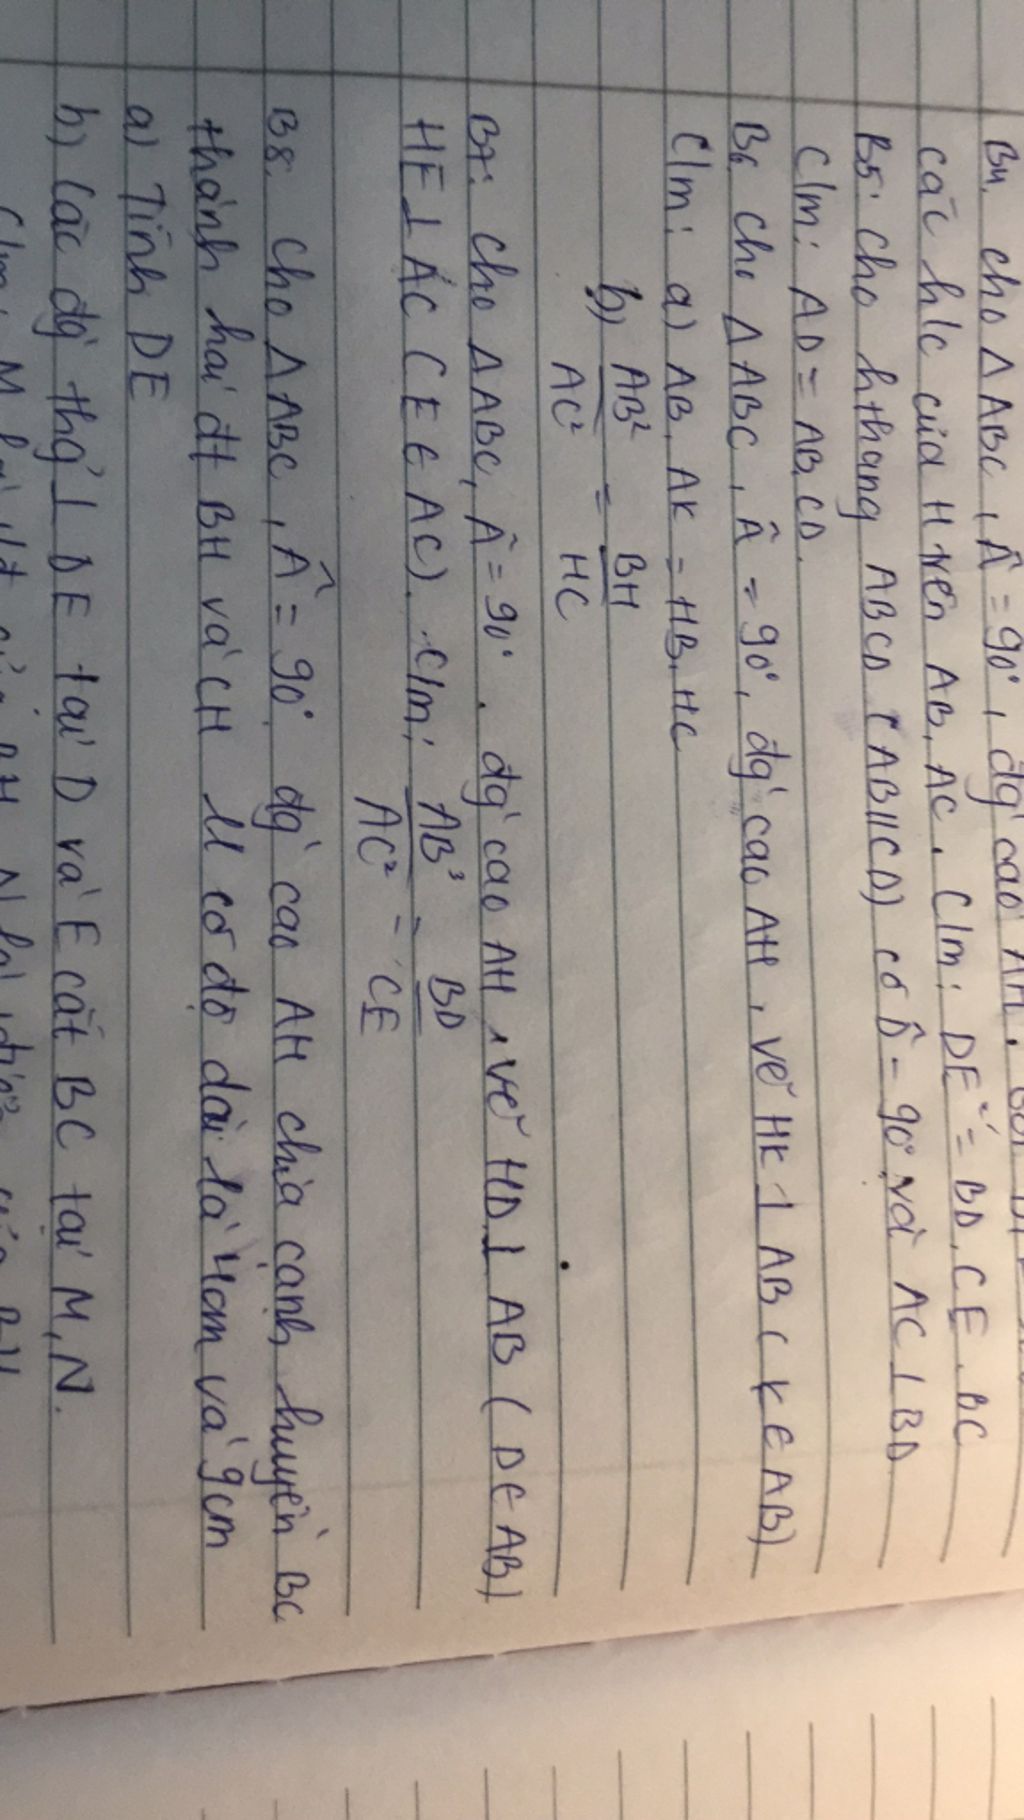 B4. cho △ABC, Â = 90°, đg' cao AH.
các h/c của H trên AB, AC. C/m: DE² = BD.CE.BC
B5: cho hthang ABCD (AB//CD) có D̂ = 90° và AC ⊥ BD
C/m: AD = AB.CD.
B6 Cho △ABC, Â = 90°, đg' cao AH, vẽ HK ⊥ AB (K ∈ AB)
C/m: a) AB.AK = HB.HC
b) AB²/AC² = BH/HC
B7: Cho △ABC, Â = 90°. đg' cao AH, vẽ HD ⊥ AB (D ∈ AB)
HE ⊥ AC (E ∈ AC). C/m: AB³/AC² = BD/CE
B8: Cho △ABC, Â = 90° đg' cao AH chia cạnh huyền BC
thành hai đt BH và CH có độ dài là 4cm và 9cm
a) Tính DE
b) Các đg' thg' ⊥ DE tại D và E cắt BC tại M, N.